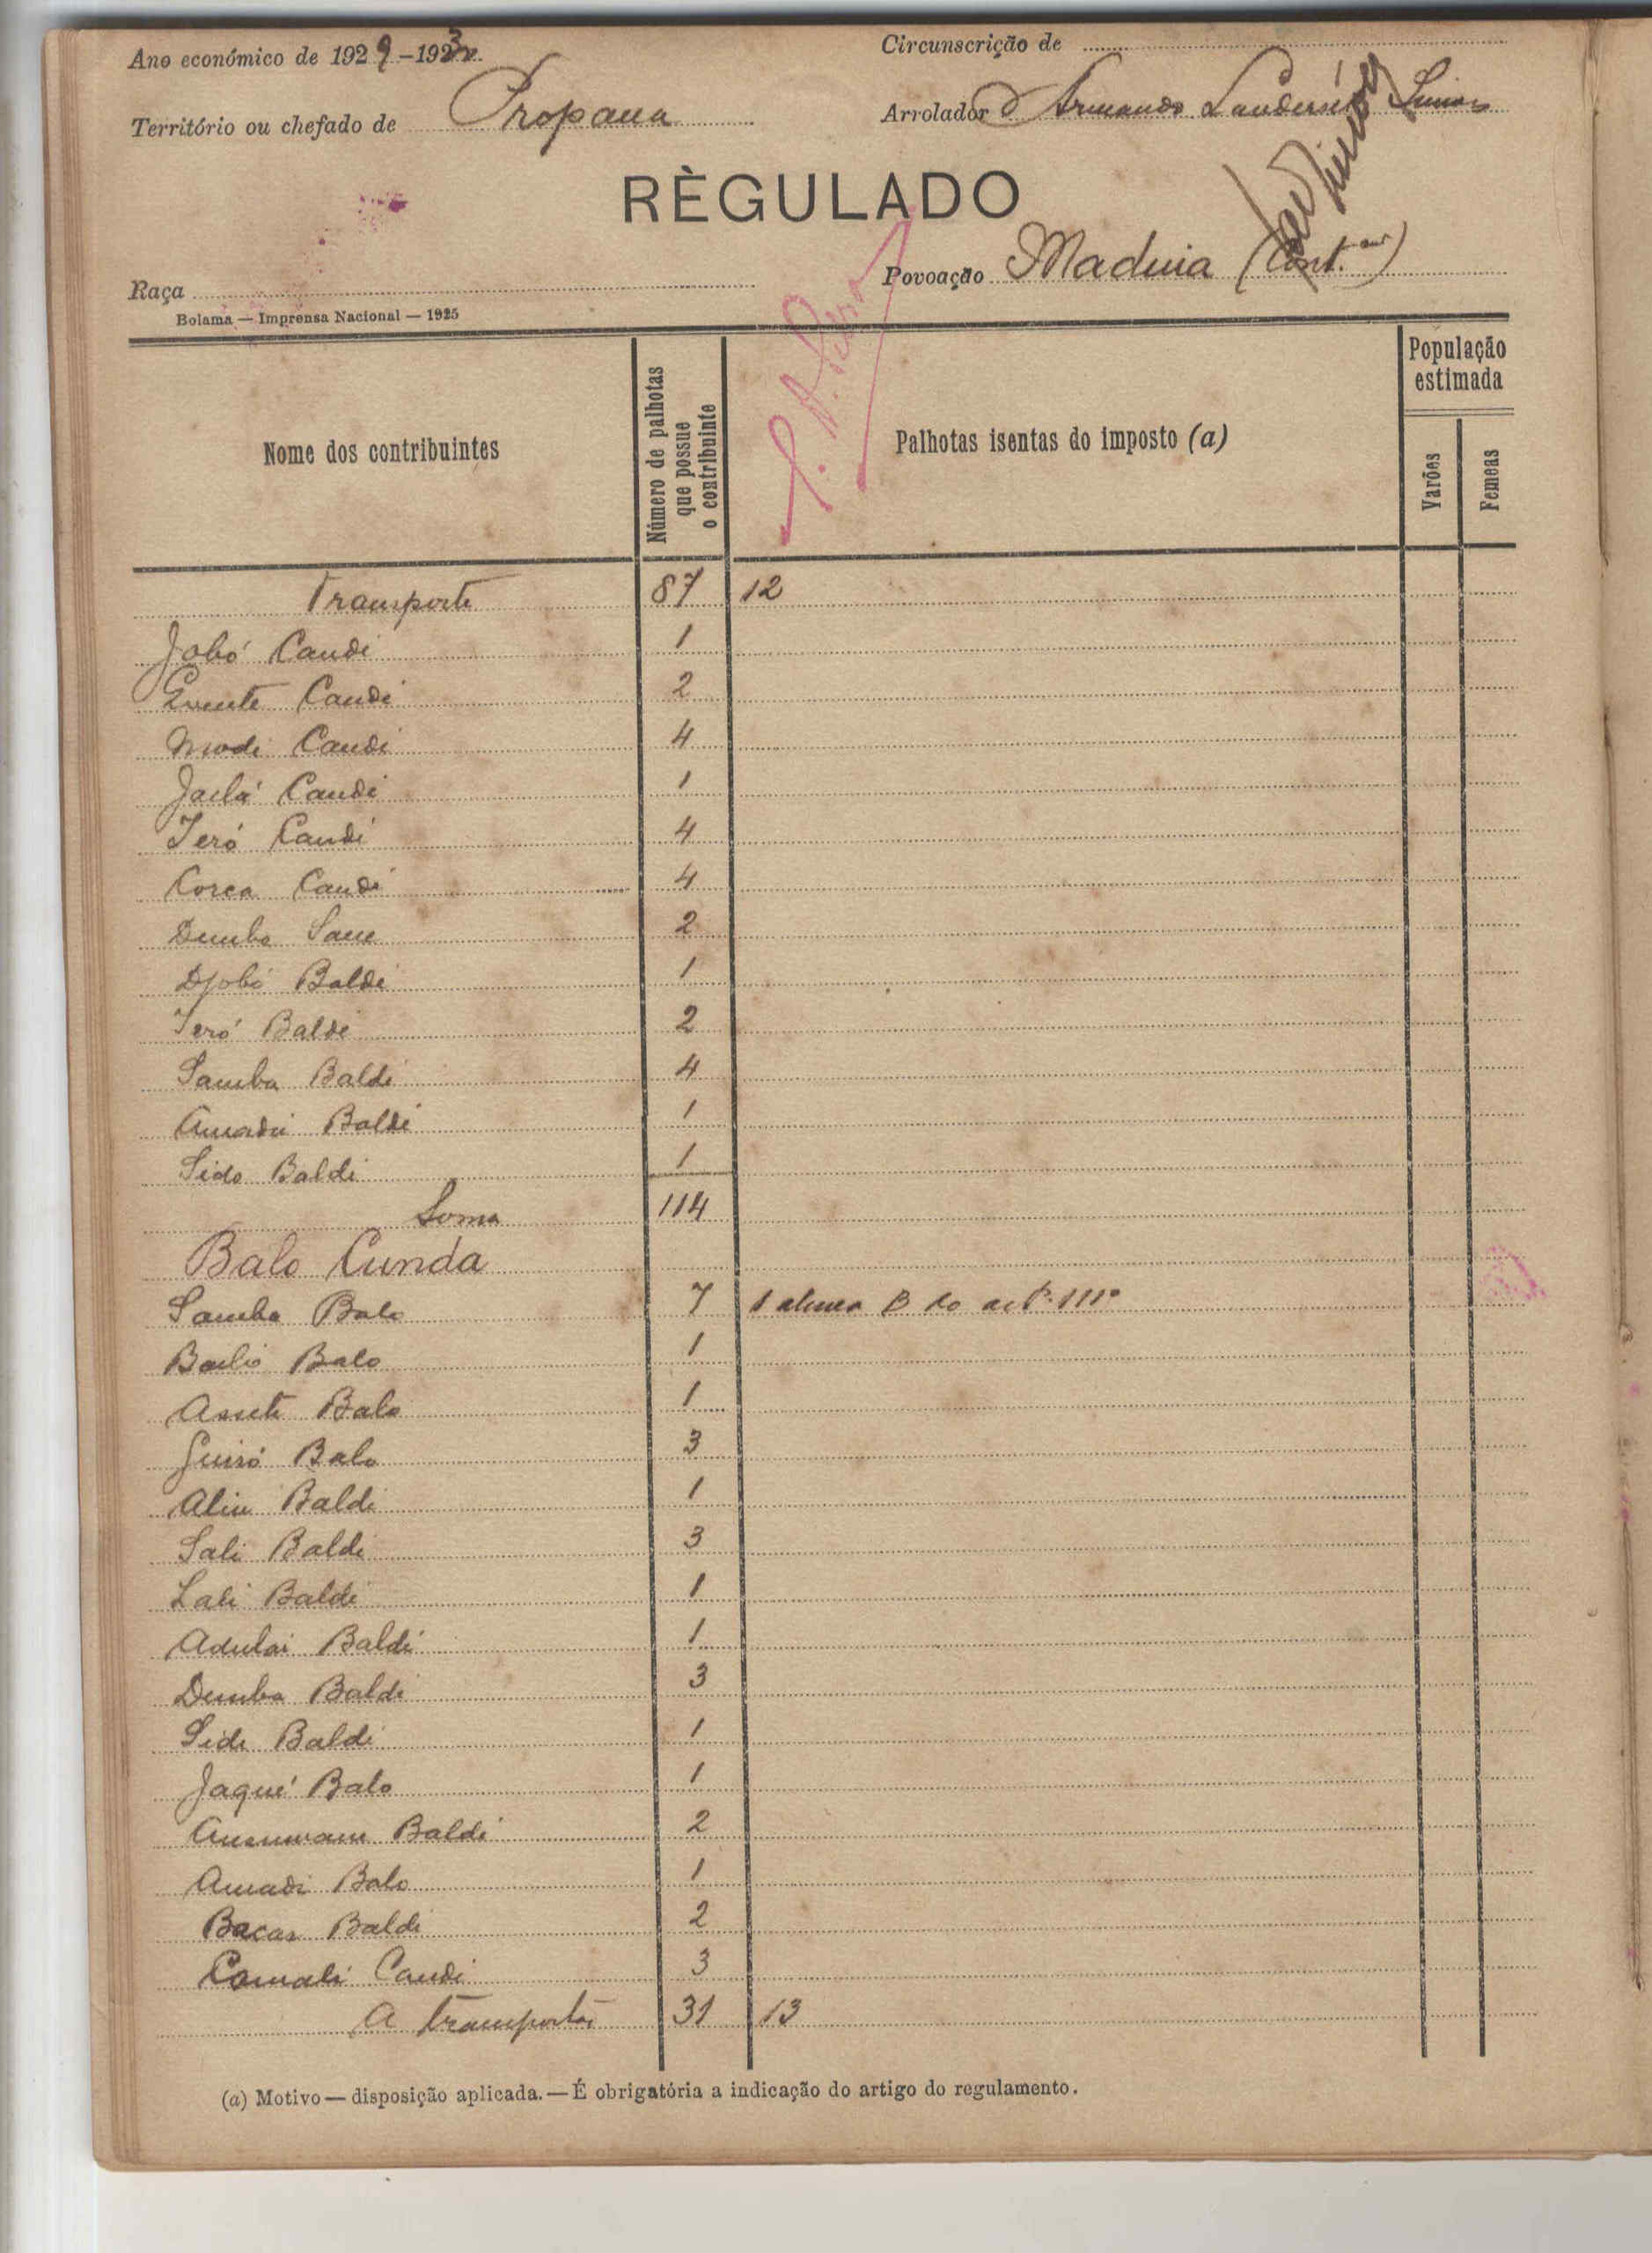 Ano económico de 1929-1930
Circunscrição de
Território ou chefado de Propana
Arrolador Armando
RÈGULADO
Povoação Maduia (Cont.)
Raça
Bolama — Imprensa Nacional — 1925
Nome dos contribuintes
Número de palhotas que possue o contribuinte
Palhotas isentas do imposto (a)
População estimada
Varões
Femeas
Transporte 87 12
Jobó Candi 1
Candi 2
Modi Candi 4
Jailá Candi 1
Jeró Candi 4
Corca Candi 4
Demba Sane 2
Djobó Baldé 1
Jeró Baldé 2
Samba Baldé 4
Amadú Baldé 1
Sido Baldé 1
Soma 114
Balo Cunda
Samba Balo 7 1 alinea B do artº 111º
Bailó Balo 1
Balo 1
Guiró Balo 3
Aliu Baldé 1
Sali Baldé 3
Lali Baldé 1
Adulai Baldé 1
Demba Baldé 3
Sidi Baldé 1
Jaqué Balo 1
Baldé 2
Amadi Balo 1
Bacar Baldé 2
Comali Candi 3
A transportar 31 13
(a) Motivo — disposição aplicada. — É obrigatória a indicação do artigo do regulamento.